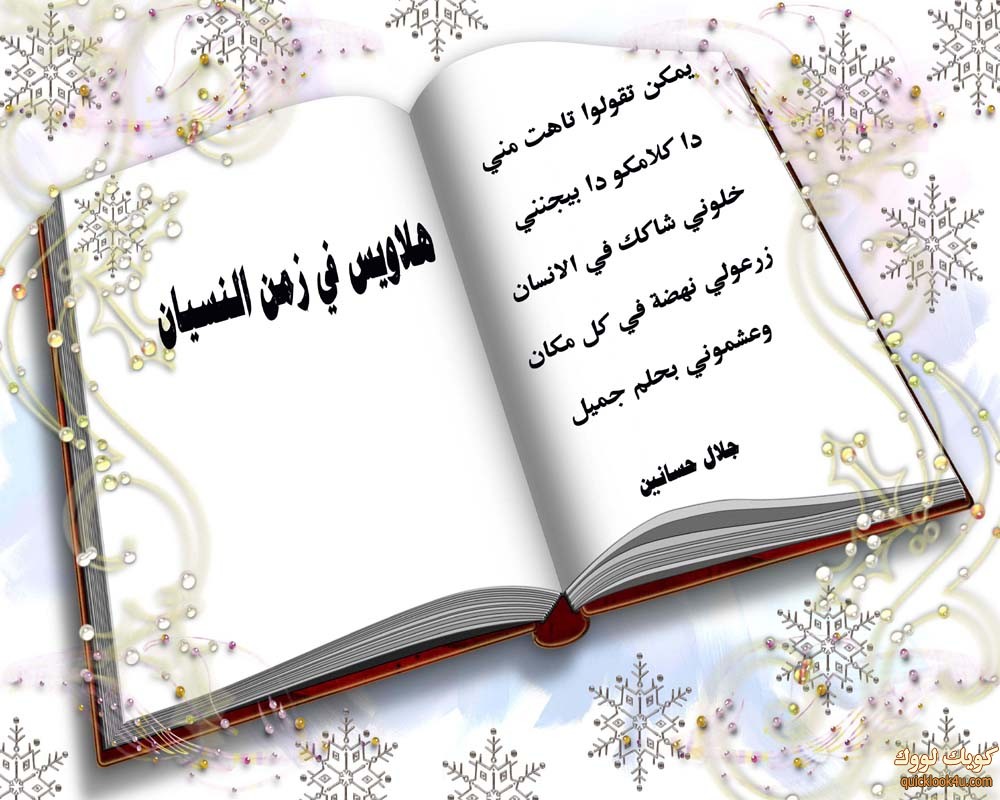 يمكن تقولوا تاهت مني
دا كلامكو دا بيجنني
خلوني شاكك في الانسان
زرعولي نهضة في كل مكان
وعشموني بحلم جميل
جلال حسانين
هلاويس في زمن النسيان
كويك لووك
quicklook4u.com